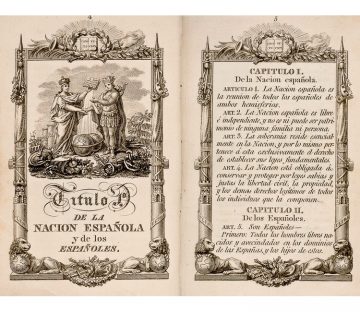 4
Titulo I.º
DE LA
NACION ESPAÑOLA
y de los
ESPAÑOLES.
5
CAPITULO I.
De la Nacion española.
ARTICULO 1. La Nacion española es
la reunion de todos los españoles de
ambos hemisferios.
ART. 2. La Nacion española es libre
é independiente, y no es ni puede ser patri-
monio de ninguna familia ni persona.
ART. 3. La soberanía reside esencial-
mente en la Nacion, y por lo mismo per-
tenece á esta exclusivamente el derecho
de establecer sus leyes fundamentales.
ART. 4. La Nacion está obligada á
conservar y proteger por leyes sabias y
justas la libertad civil, la propiedad,
y los demas derechos legítimos de todos
los individuos que la componen.
CAPITULO II.
De los Españoles.
ART. 5. Son Españoles—
Primero: Todos los hombres libres na-
cidos y avecindados en los dominios
de las Españas, y los hijos de estos.